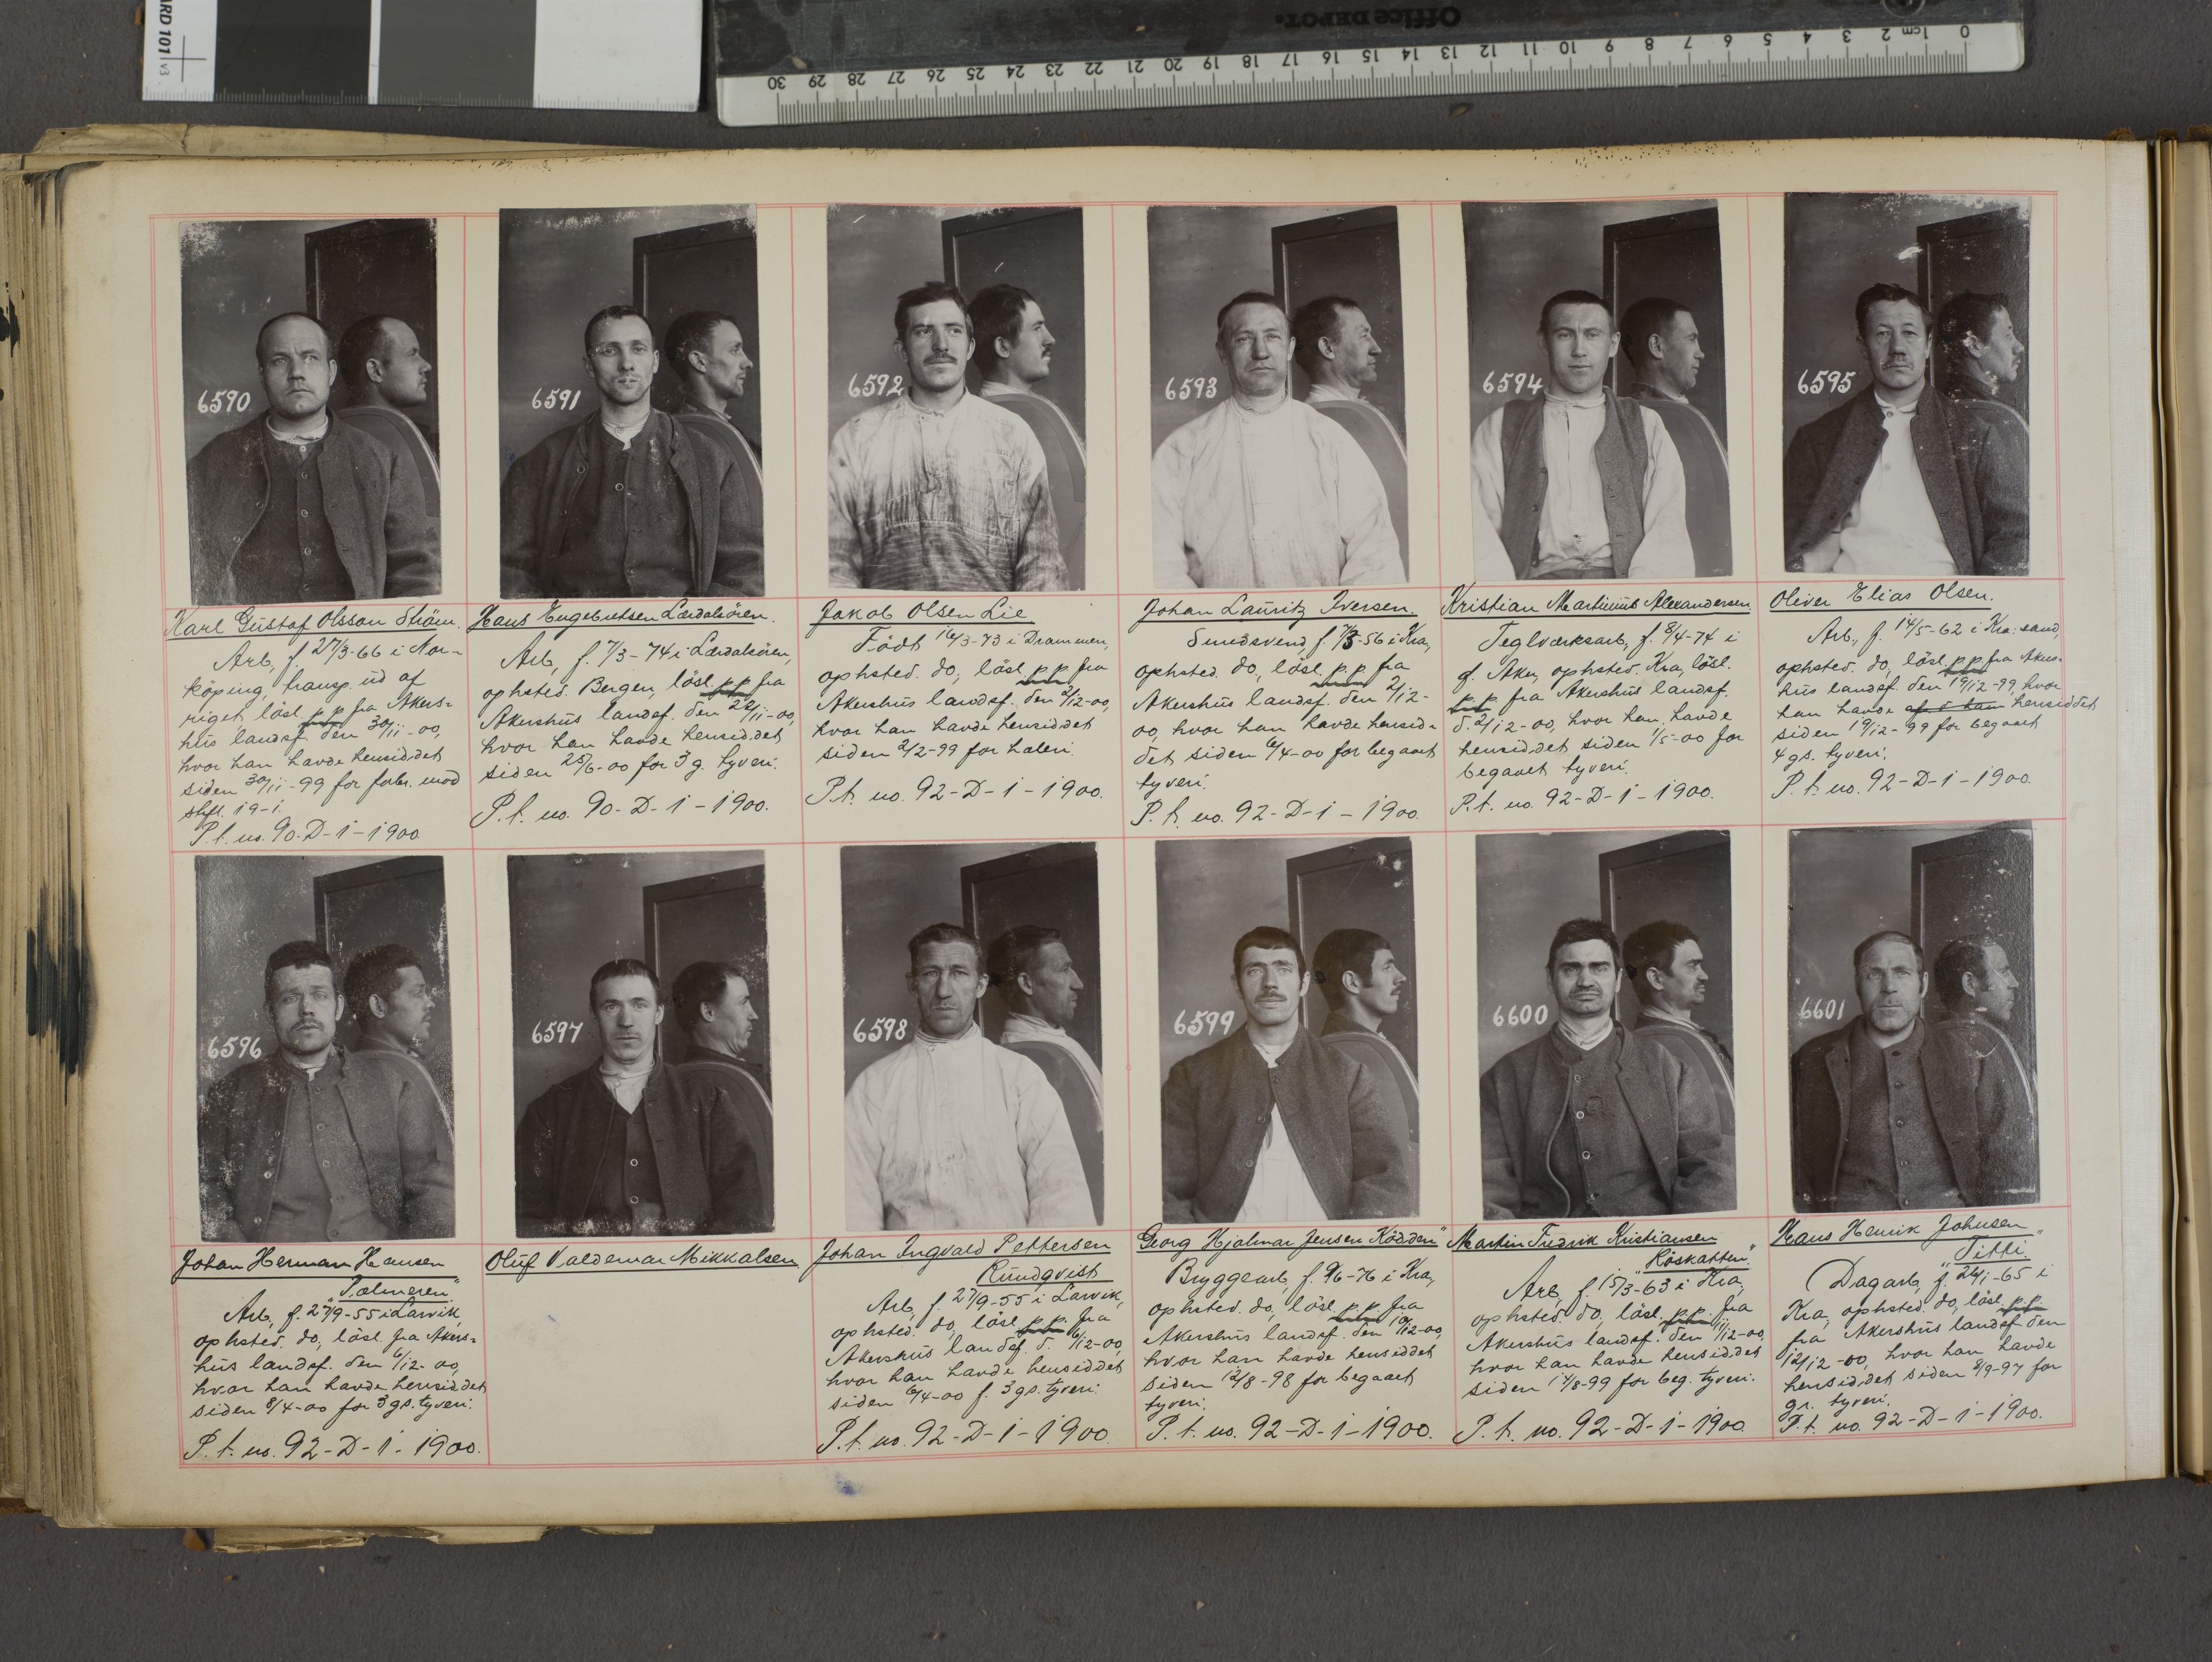 ARD 101 v3.
Office DEPOT.
0 1cm 2 3 4 5 6 7 8 9 10 11 12 13 14 15 16 17 18 19 20 21 22 23 24 25 26 27 28 29 30
6590
Karl Gustaf Olsson Ström.
Arb, f. 27/3-66 i Nor-
köping, transp. ud af
riget, lösl. p.p. fra Akers-
hus landsf. den 30/11-00,
hvor han havde hensiddet
siden 30/11-99 for forbr. mod
strfl. 19-1.
P.t. no. 90-D-1-1900.
6591
Hans Engebretsen Lærdalsören.
Arb, f. 7/3-74 i Lærdalsören,
ophsted. Bergen, lösl. p.p. fra
Akershus landsf. den 22/11-00,
hvor han havde hensiddet
siden 25/6-00 for 3 g. tyveri.
P.t. no. 90-D-1-1900.
6592
Jakob Olsen Lie
Födt 16/3-73 i Drammen,
ophsted. do, lösl. p.p. fra
Akershus landsf. den 2/12-00,
hvor han havde hensiddet
siden 2/2-99 for haleri.
P.t. no. 92-D-1-1900.
6593
Johan Lauritz Iversen.
Smedsvend, f. 7/3-56 i Kra,
ophsted. do, lösl. p.p. fra
Akershus landsf. den 2/12-
00, hvor han havde hensid-
det siden 6/4-00 for begaaet
tyveri.
P.t. no. 92-D-1-1900.
6594
Kristian Martinius Alexandersen
Teglværksarb, f. 8/4-74 i
d. Aker, ophsted. Kra, lösl.
p.p. fra Akershus landsf.
d. 2/12-00, hvor han havde
hensiddet siden 1/5-00 for
begaaet tyveri.
P.t. no. 92-D-1-1900.
6595
Oliver Elias Olsen.
Arb, f. 14/5-62 i Kra. sand,
ophsted. do, lösl. p.p. fra Akers-
hus landsf. den 19/12-99, hvor
han havde hensiddet
siden 19/12-99 for begaaet
4 gs. tyveri.
P.t. no. 92-D-1-1900.
6596
Johan Herman Hansen
"Palmeren"
Arb, f. 27/9-55 i Larvik,
ophsted. do, lösl. fra Akers-
hus landsf. den 6/12-00,
hvor han havde hensiddet
siden 8/4-00 for 3 gs. tyveri.
P.t. no. 92-D-1-1900.
6597
Oluf Valdemar Mikkalsen
6598
Johan Ingvald Pettersen
Rundqvist
Arb, f. 27/9-55 i Larvik,
ophsted. do, lösl. p.p. fra
Akershus landsf. d. 6/12-00,
hvor han havde hensiddet
siden 6/4-00 f. 3 gs. tyveri.
P.t. no. 92-D-1-1900.
6599
Georg Hjalmar Jensen "Ködden"
Bryggearb, f. 9/6-76 i Kra,
ophsted. do, lösl. p.p. fra
Akershus landsf. den 10/12-00,
hvor han havde hensiddet
siden 12/8-98 for begaaet
tyveri.
P.t. no. 92-D-1-1900.
6600
Martin Fredrik Kristiansen
"Röskatten"
Arb, f. 15/3-63 i Kra,
ophsted. do, lösl. p.p. fra
Akershus landsf. den 11/12-00,
hvor han havde hensiddet
siden 11/8-99 for beg. tyveri.
P.t. no. 92-D-1-1900
6601
Hans Henrik Johnsen
"Titti"
Dagarb, f. 24/1-65 i
Kra, ophsted. do, lösl. p.p.
fra Akershus landsf. den
12/12-00, hvor han havde
hensiddet siden 8/9-97 for
gr. tyveri.
P.t. no. 92-D-1-1900.